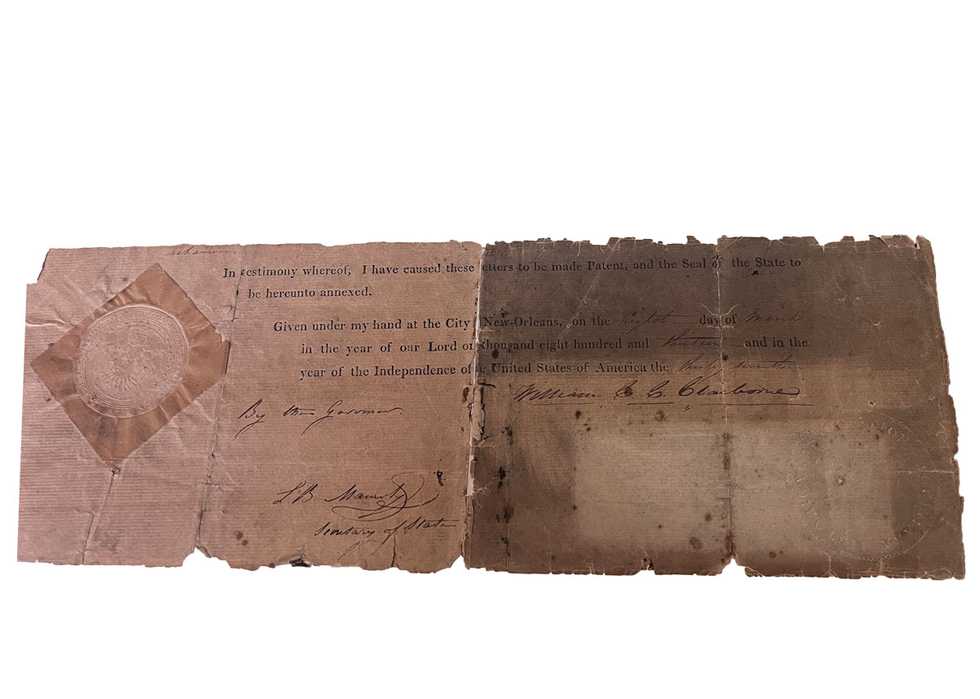 In testimony whereof, I have caused these Letters to be made Patent, and the Seal of the State to
be hereunto annexed.
Given under my hand at the City New-Orleans, on the eighth day of March
in the year of our Lord on thousand eight hundred and thirteen and in the
year of the Independence of the United States of America the thirty seventh
William C. C. Claiborne
By the Governor
L B Macarty
Secretary of State